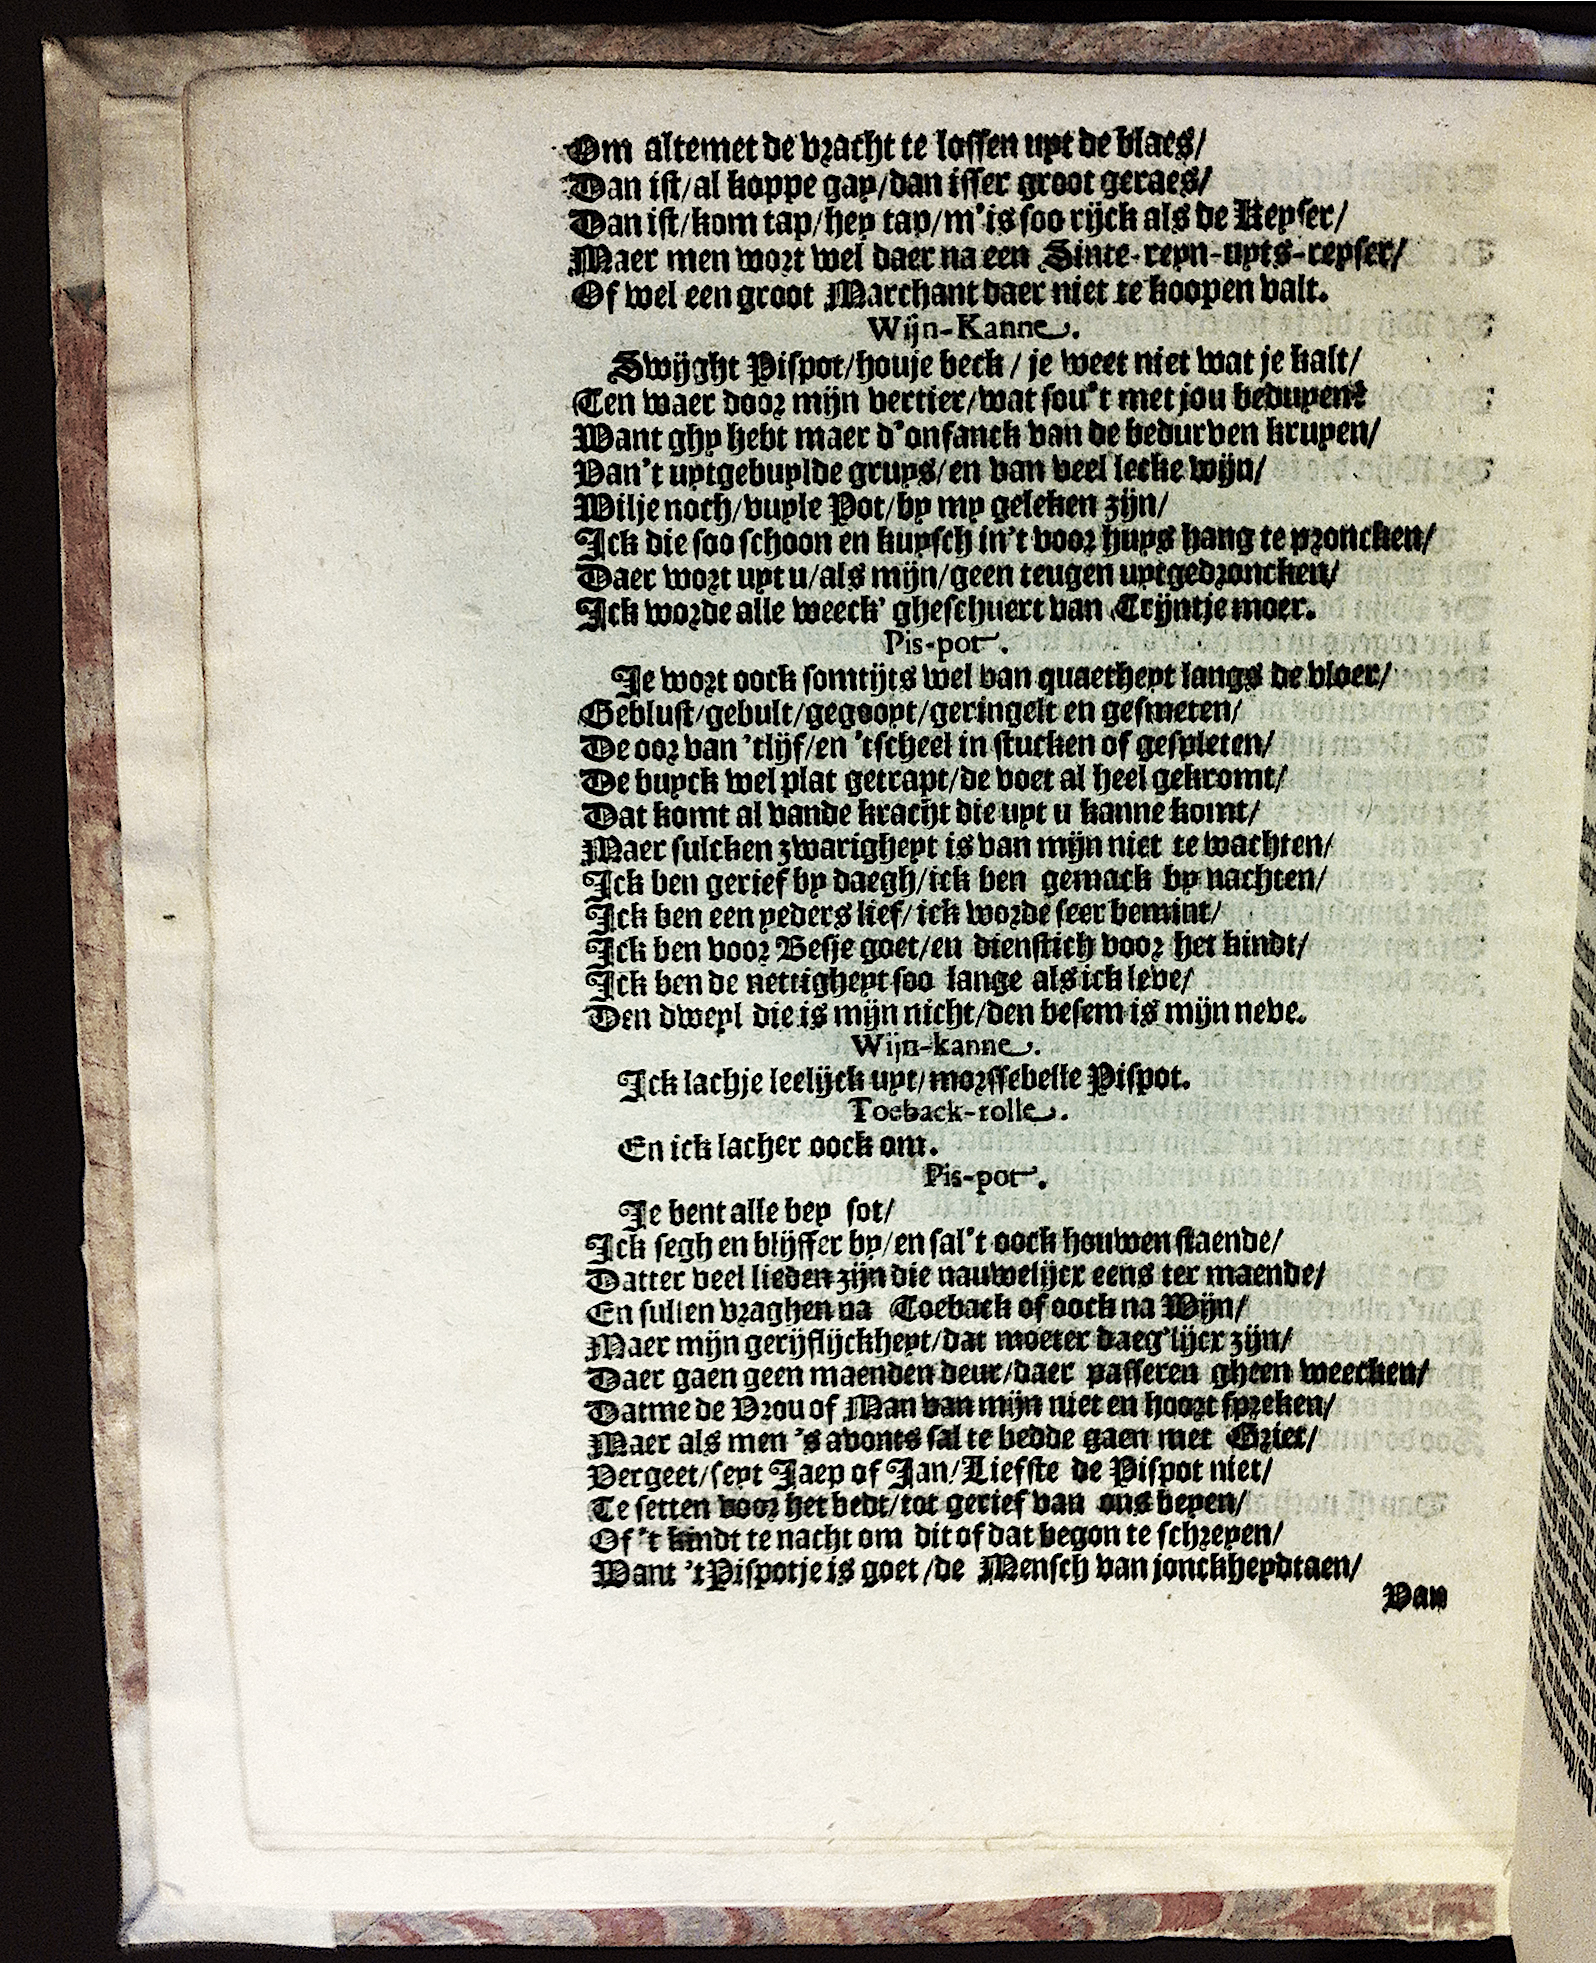 Om altemet de vracht te lossen uyt de blaes/
Dan ist/al koppe gay/dan isser groot geraes/
Dan ist/kom tap/hey tap/m'is soo rijck als de Keyser/
Maer men wort wel daer na een Sinte-reyn-uyts-reyser/
Of wel een groot Marchant daer niet te koopen valt.
Wijn-Kanne.
Swijght Pispot/houje beck/je weet niet wat je kalt/
Ten waer door mijn vertier/wat sou't met jou beduyen?
Want ghy hebt maer d'onfanck van de bedurven kruyen/
Van't uytgebuylde gruys/en van veel lecke wijn/
Wilje noch/vuyle Pot/by my geleken zijn/
Ick die soo schoon en kuysch in't voor huys hang te proncken/
Daer wort uyt u/als mijn/geen teugen uytgedroncken/
Ick worde alle weeck' gheschuert van Trijntje moer.
Pis-pot.
Je wort oock somtijts wel van quaetheyt langs de vloer/
Geblust/gebult/gegooyt/geringelt en gesmeten/
De oor van 'tlijf/en 'tscheel in stucken of gespleten/
De buyck wel plat getrapt/de voet al heel gekromt/
Dat komt al vande kracht die uyt u kanne komt/
Maer sulcken zwarigheyt is van mijn niet te wachten/
Ick ben gerief by daegh/ick ben gemack by nachten/
Ick ben een yeders lief/ick worde seer bemint/
Ick ben voor Besje goet/en dienstich voor het kindt/
Ick ben de nettigheyt soo lange als ick leve/
Den dweyl die is mijn nicht/den besem is mijn neve.
Wijn-kanne.
Ick lachje leelijck uyt/morssebelle Pispot.
Toeback-rolle.
En ick lacher oock om.
Pis-pot.
Je bent alle bey sot/
Ick segh en blijffer by/en sal't oock houwen staende/
Datter veel lieden zijn die nauwelijcx eens ter maende/
En sullen vraghen na Toeback of oock na Wijn/
Maer mijn gerijflijckheyt/dat moeter daeg'lijcx zijn/
Daer gaen geen maenden deur/daer passeren gheen weecken/
Datme de Vrou of Man van mijn niet en hoort spreken/
Maer als men 's avonts sal te bedde gaen met Griet/
Vergeet/seyt Jaep of Jan/Liefste de Pispot niet/
Te setten voor het bedt/tot gerief van ons beyen/
Of 't kindt te nacht om dit of dat begon te schreyen/
Want 'tPispotje is goet/de Mensch van jonckheydtaen/
Van